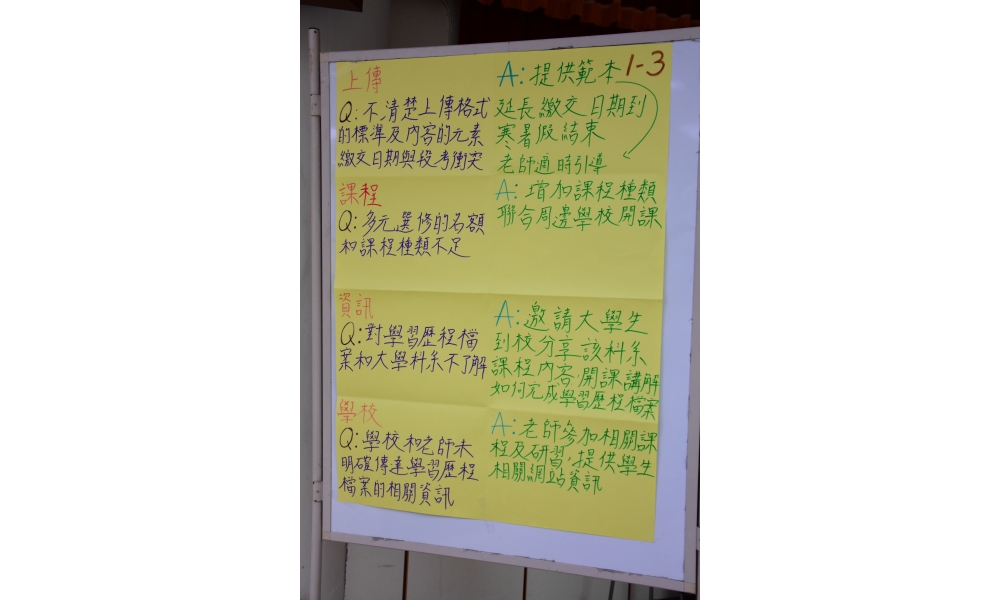 1-3
上傳
Q:不清楚上傳格式
的標準及內容的元素
繳交日期與段考衝突
A:提供範本
延長繳交日期到
寒暑假結束
老師適時引導
課程
Q:多元選修的名額
和課程種類不足
A:增加課程種類
聯合周邊學校開課
資訊
Q:對學習歷程檔
案和大學科系不了解
A:邀請大學生
到校分享該科系
課程內容,開課講解
如何完成學習歷程檔案
學校
Q:學校和老師未
明確傳達學習歷程
檔案的相關資訊
A:老師參加相關課
程及研習,提供學生
相關網站資訊